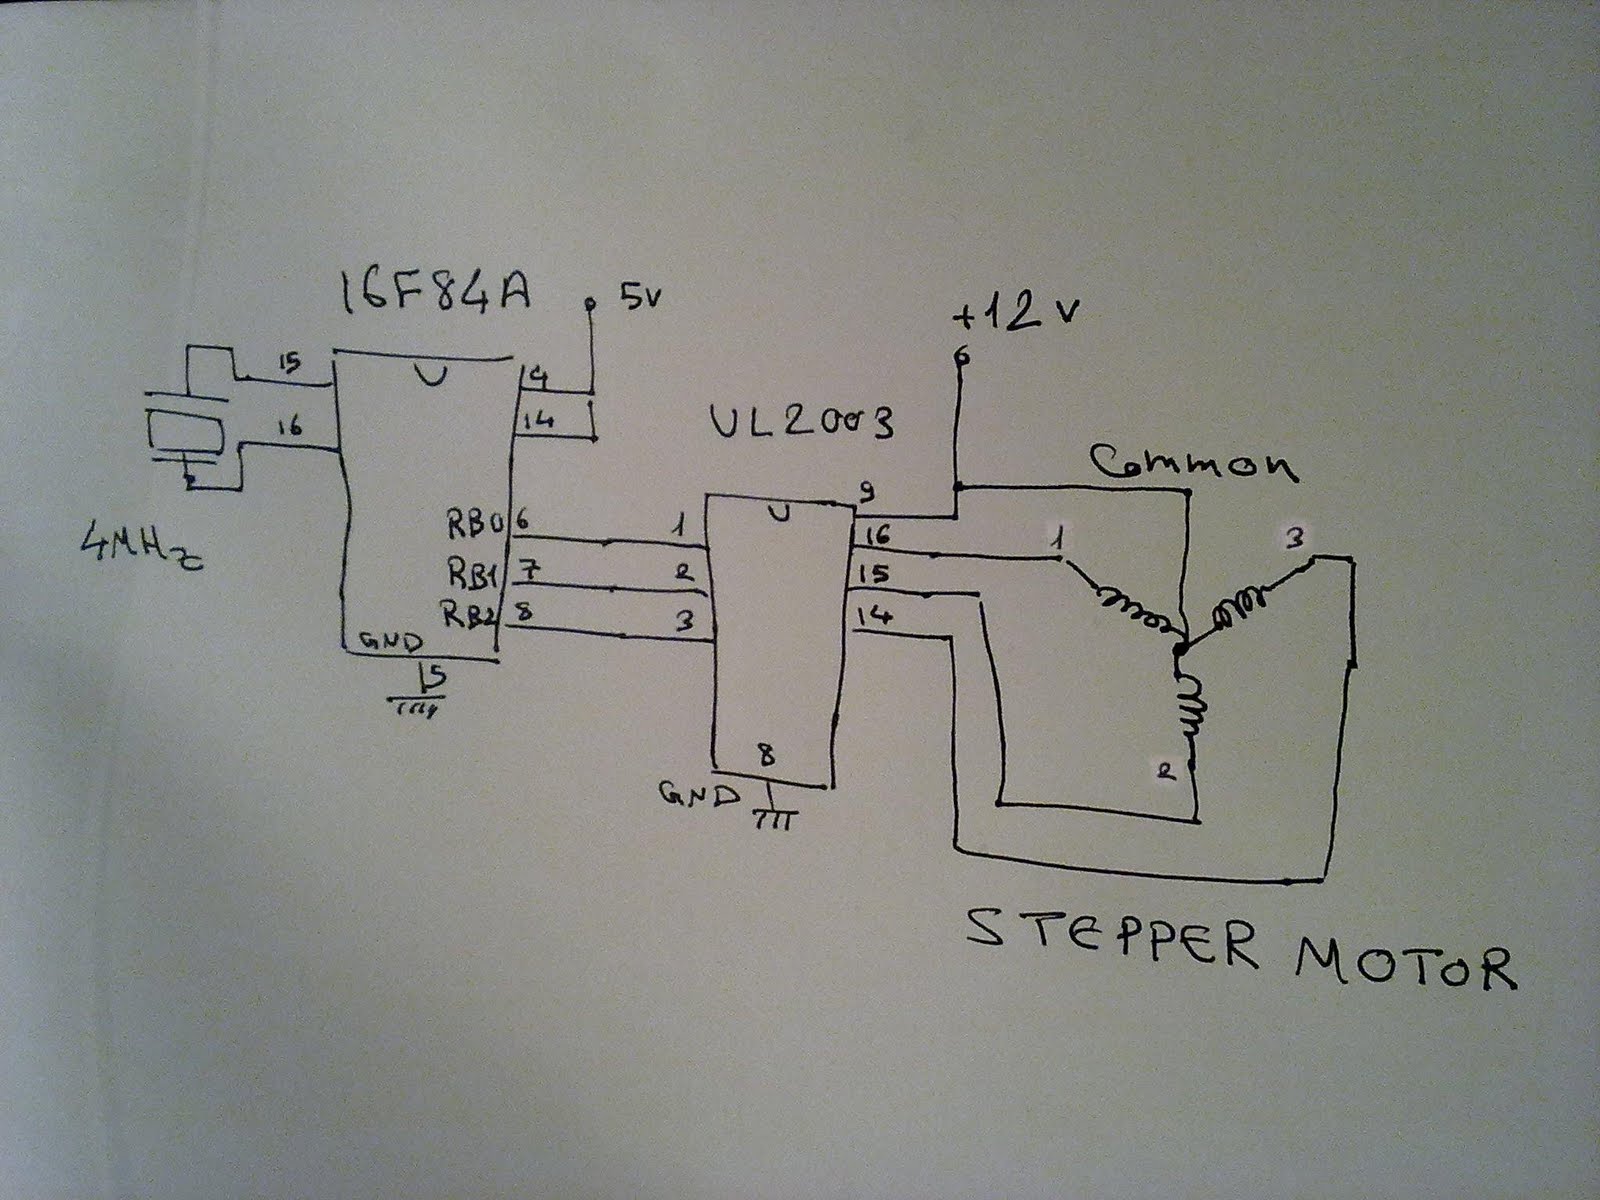 16F84A
5V
+12V
15
4
16
14
4MHz
UL2003
Common
9
RB0 6
1
16
1
3
RB1 7
2
15
RB2 8
3
14
GND
15
8
GND
2
STEPPER MOTOR